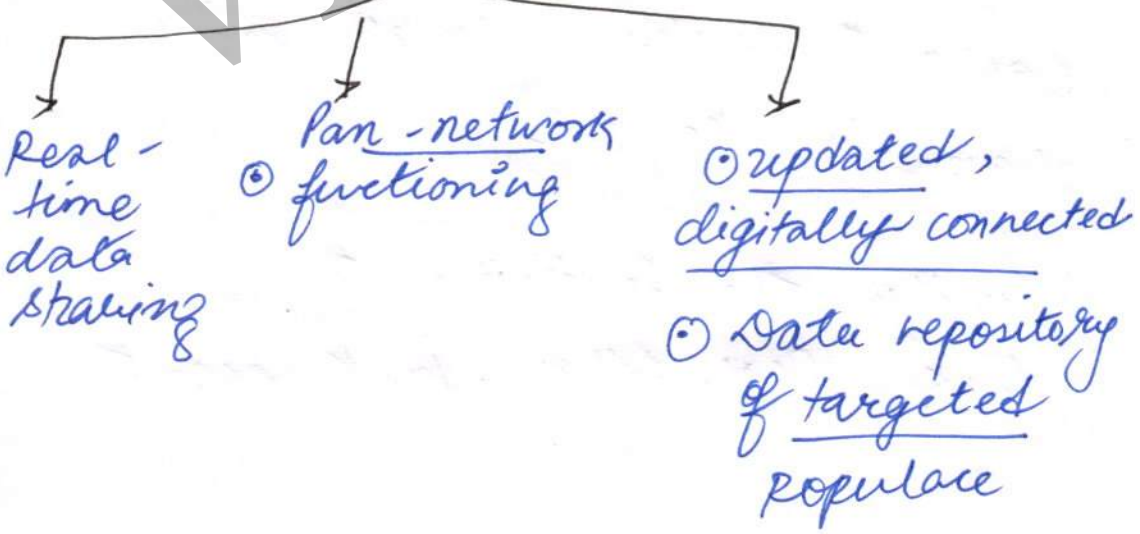 Real-
time
data
sharing
Pan-network
⊙ functioning
⊙ updated,
digitally connected
⊙ Data repository
of targeted
populace